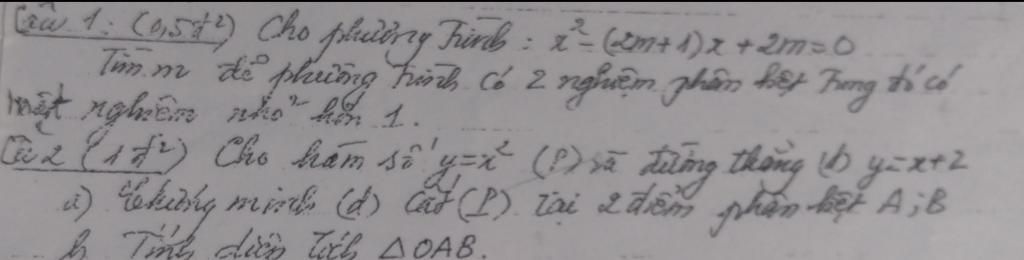 Câu 1: (0,5đ) Cho phương trình: x² - (2m+1)x + 2m = 0
Tìm m để phương trình có 2 nghiệm phân biệt trong đó có
một nghiệm nhỏ hơn 1.
Câu 2 (1đ) Cho hàm số y = x² (P) và đường thẳng (d) y = x + 2
a) Chứng minh (d) cắt (P) tại 2 điểm phân biệt A; B
b Tính diện tích △OAB.